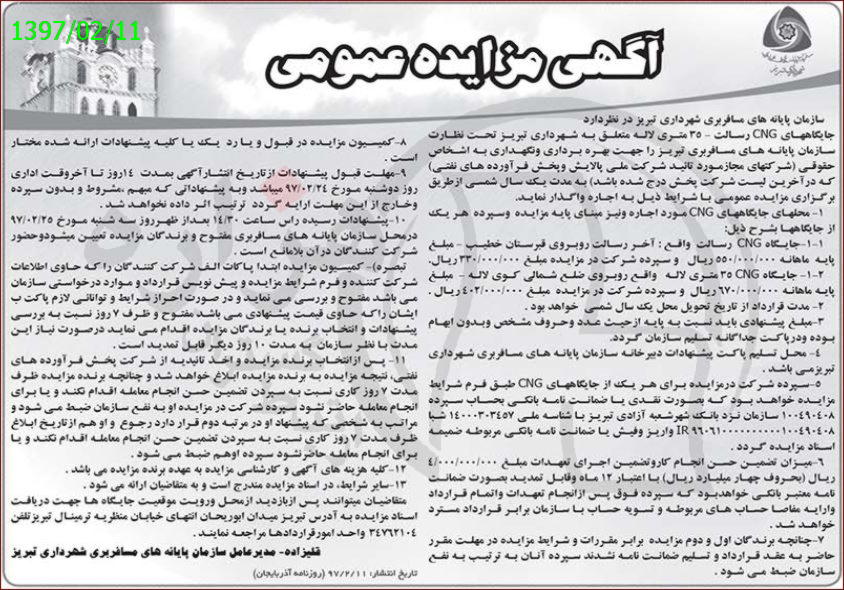 1397/02/11
آگهی مزایده عمومی
سازمان پایانه های مسافربری شهرداری تبریز در نظردارد
جایگاههای CNG رسالت - ۳۵ متری لاله متعلق به شهرداری تبریز تحت نظارت
سازمان پایانه های مسافربری تبریز را جهت بهره برداری ونگهداری به اشخاص
حقوقی (شرکتهای مجازمورد تائید شرکت ملی پالایش وپخش فرآورده های نفتی)
که درآخرین لیست شرکت پخش درج شده باشد) به مدت یک سال شمسی ازطریق
برگزاری مزایده عمومی با شرایط ذیل به اجاره واگذار نماید.
۱- محلهای جایگاههای CNG مورد اجاره ونیز مبنای پایه مزایده وسپرده هر یک
از جایگاهها بشرح ذیل:
۱-۱- جایگاه CNG رسالت واقع : آخر رسالت روبروی قبرستان خطیب - مبلغ
پایه ماهانه ۵۵۰/۰۰۰/۰۰۰ ریال و سپرده شرکت در مزایده مبلغ ۳۳۰/۰۰۰/۰۰۰ ریال.
۱-۲- جایگاه CNG ۳۵ متری لاله واقع روبروی ضلع شمالی کوی لاله - مبلغ
پایه ماهانه ۶۷۰/۰۰۰/۰۰۰ ریال و سپرده شرکت در مزایده مبلغ ۴۰۲/۰۰۰/۰۰۰ ریال .
۲- مدت قرارداد از تاریخ تحویل محل یک سال شمسی خواهد بود .
۳-مبلغ پیشنهادی باید نسبت به پایه ازحیث عدد وحروف مشخص وبدون ابهام
بوده ودرپاکت جداگانه تسلیم سازمان گردد.
۴- محل تسلیم پاکت پیشنهادات دبیرخانه سازمان پایانه های مسافربری شهرداری
تبریزمی باشد .
۵-سپرده شرکت درمزایده برای هر یک از جایگاههای CNG طبق فرم شرایط
مزایده خواهد بود که بصورت نقدی یا ضمانت نامه بانکی بحساب سپرده
۱۰۰۴۹۰۴۰۸ سازمان نزد بانک شهرشعبه آزادی تبریز با شناسه ملی ۱۴۰۰۰۳۰۳۴۵۷ شبا
IR ۹۶۰۶۱۰۰۰۰۰۰۰۰۱۰۰۴۹۰۴۰۸ واریز وفیش یا ضمانت نامه بانکی مربوطه ضمیمه
اسناد مزایده گردد .
۶-میزان تضمین حسن انجام کاروتضمین اجرای تعهدات مبلغ ۴/۰۰۰/۰۰۰/۰۰۰
ریال (بحروف چهار میلیارد ریال) با اعتبار ۱۲ ماه وقابل تمدید بصورت ضمانت
نامه معتبر بانکی خواهدبود که سپرده فوق پس ازانجام تعهدات واتمام قرارداد
وارایه مفاصا حساب های مربوطه و تسویه حساب با سازمان برابر قرارداد مسترد
خواهد شد .
۷-چنانچه برندگان اول و دوم مزایده برابر مقررات و شرایط مزایده در مهلت مقرر
حاضر به عقد قرارداد و تسلیم ضمانت نامه نشدند سپرده آنان به ترتیب به نفع
سازمان ضبط می شود .
۸-کمیسیون مزایده در قبول و یا رد یک یا کلیه پیشنهادات ارائه شده مختار
است .
۹-مهلت قبول پیشنهادات ازتاریخ انتشارآگهی بمدت ۱۴روز تا آخروقت اداری
روز دوشنبه مورخ ۹۷/۰۲/۲۴ میباشد وبه پیشنهاداتی که مبهم ،مشروط و بدون سپرده
وخارج از این مهلت ارایه گردد ترتیب اثر داده نخواهد شد .
۱۰-پیشنهادات رسیده راس ساعت ۱۴/۳۰ بعداز ظهرروز سه شنبه مورخ ۹۷/۰۲/۲۵
درمحل سازمان پایانه های مسافربری مفتوح و برندگان مزایده تعیین میشودوحضور
شرکت کنندگان درآن بلامانع است .
تبصره)- کمیسیون مزایده ابتدا پاکات الف شرکت کنندگان راکه حاوی اطلاعات
شرکت کننده و فرم شرایط مزایده و پیش نویس قرارداد و موارد درخواستی سازمان
می باشد مفتوح و بررسی می نماید و در صورت احراز شرایط و توانائی لازم پاکت ب
ایشان راکه حاوی قیمت پیشنهادی می باشد مفتوح و ظرف ۷ روز نسبت به بررسی
پیشنهادات و انتخاب برنده یا برندگان مزایده اقدام می نماید درصورت نیاز این
مدت با نظر سازمان به مدت ۱۰ روز دیگر قابل تمدید است .
۱۱- پس ازانتخاب برنده مزایده و اخذ تائیدیه از شرکت پخش فرآورده های
نفتی، نتیجه مزایده به برنده مزایده ابلاغ خواهد شد و چنانچه برنده مزایده ظرف
مدت ۷ روز کاری نسبت به سپردن تضمین حسن انجام معامله اقدام نکند و یا برای
انجام معامله حاضر نشود سپرده شرکت در مزایده او به نفع سازمان ضبط می شود و
مراتب به شخصی که پیشنهاد او در مرتبه دوم قرار دارد رجوع و او هم ازتاریخ ابلاغ
ظرف مدت ۷ روز کاری نسبت به سپردن تضمین حسن انجام معامله اقدام نکند و یا
برای انجام معامله حاضرنشود سپرده اوهم ضبط می شود .
۱۲-کلیه هزینه های آگهی و کارشناسی مزایده به عهده برنده مزایده می باشد .
۱۳-سایر شرایط، در اسناد مزایده مندرج است و به متقاضیان ارائه می شود .
متقاضیان میتوانند پس ازبازدید ازمحل ورویت موقعیت جایگاه ها جهت دریافت
اسناد مزایده به آدرس تبریز میدان ابوریحان انتهای خیابان منظریه ترمینال تبریزتلفن
۳۴۷۶۲۱۰۴ واحد امورقراردادها مراجعه نمایند .
قلیزاده- مدیرعامل سازمان پایانه های مسافربری شهرداری تبریز
تاریخ انتشار: ۹۷/۲/۱۱ (روزنامه آذربایجان)